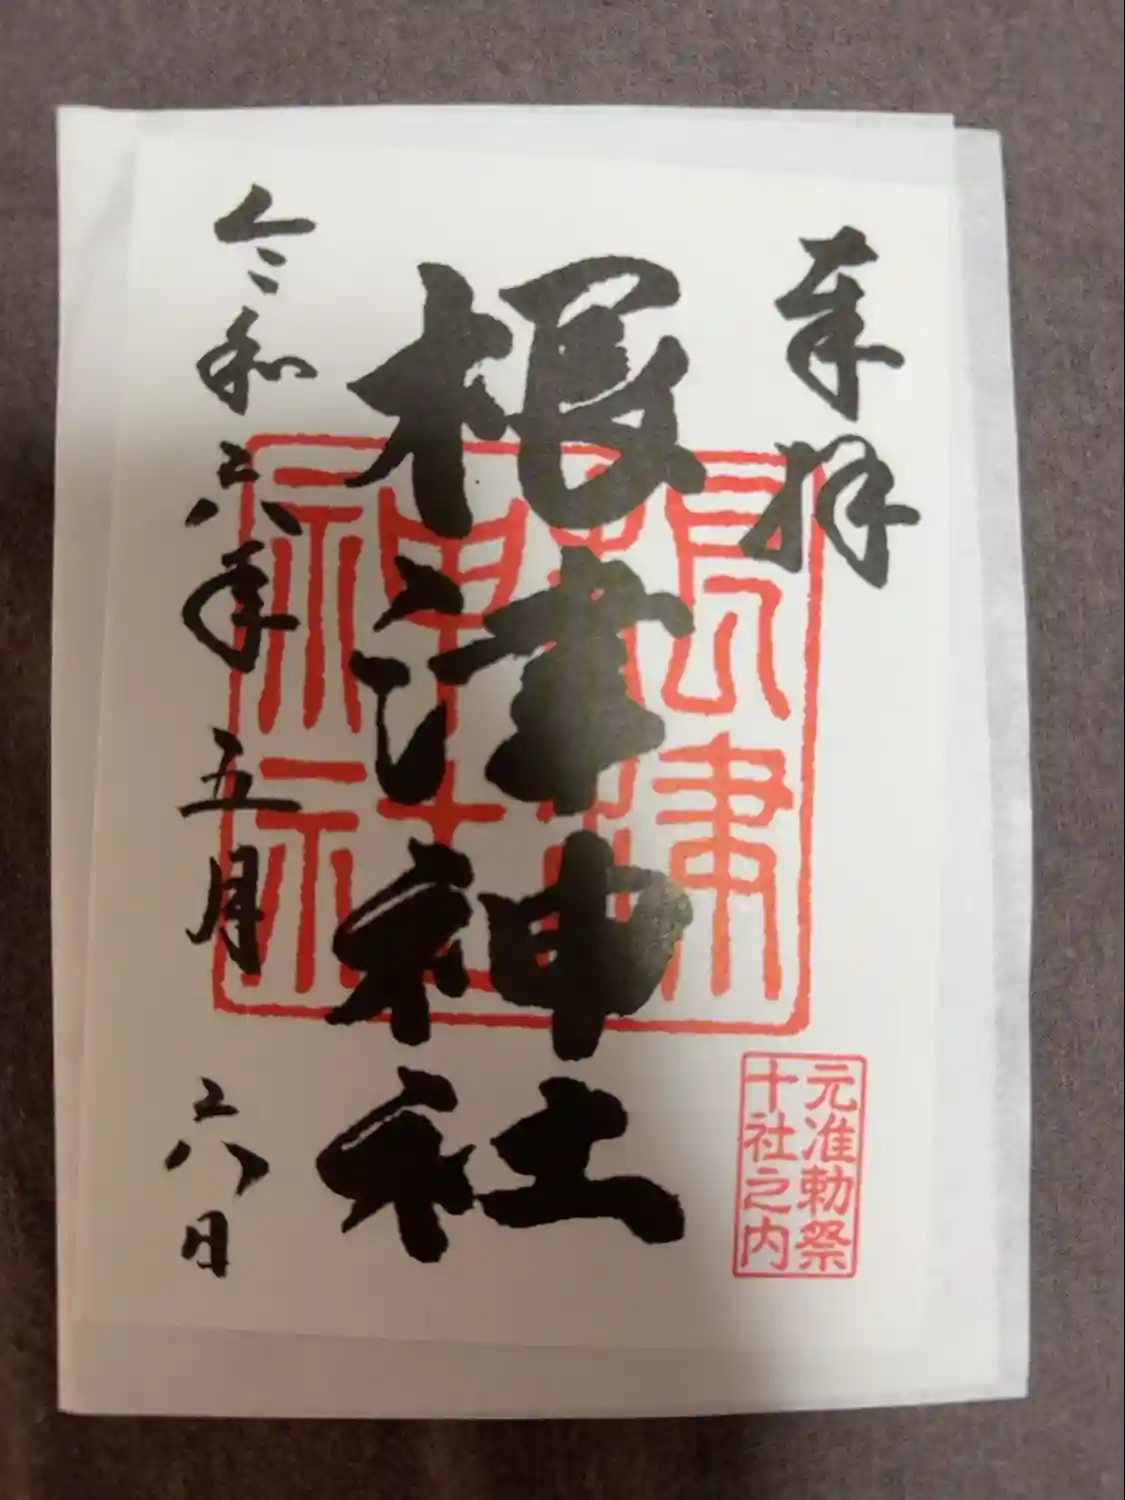 奉拝
根津神社
根津神社
元准勅祭
十社之内
令和六年五月六日